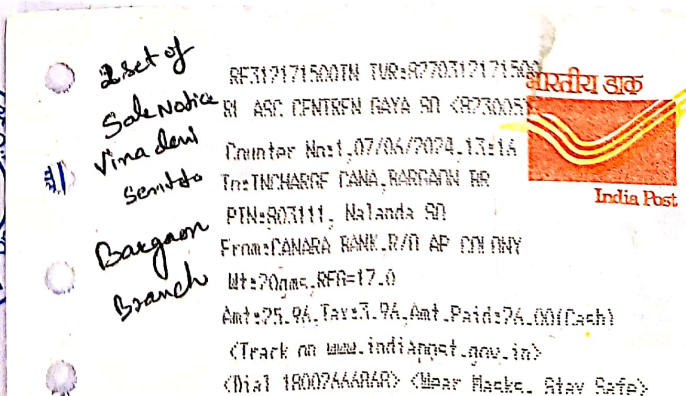 2 set of
Sale Notice
Vina devi
sent to
Bargaon
Branch
RF312171500IN IVR:8270312171500
RL ASC CENTREN GAYA SO <823005>
Counter No:1,07/06/2024,13:16
To:INCHARGE CANA,BARGAON BR
PIN:803111, Nalanda SO
From:CANARA BANK,R/O AP COLONY
Wt:20gms,REG=17.0
Amt:25.96,Tax:3.96,Amt.Paid:26.00(Cash)
<Track on www.indiapost.gov.in>
<Dial 18002666868> <Wear Masks, Stay Safe>
भारतीय डाक
India Post